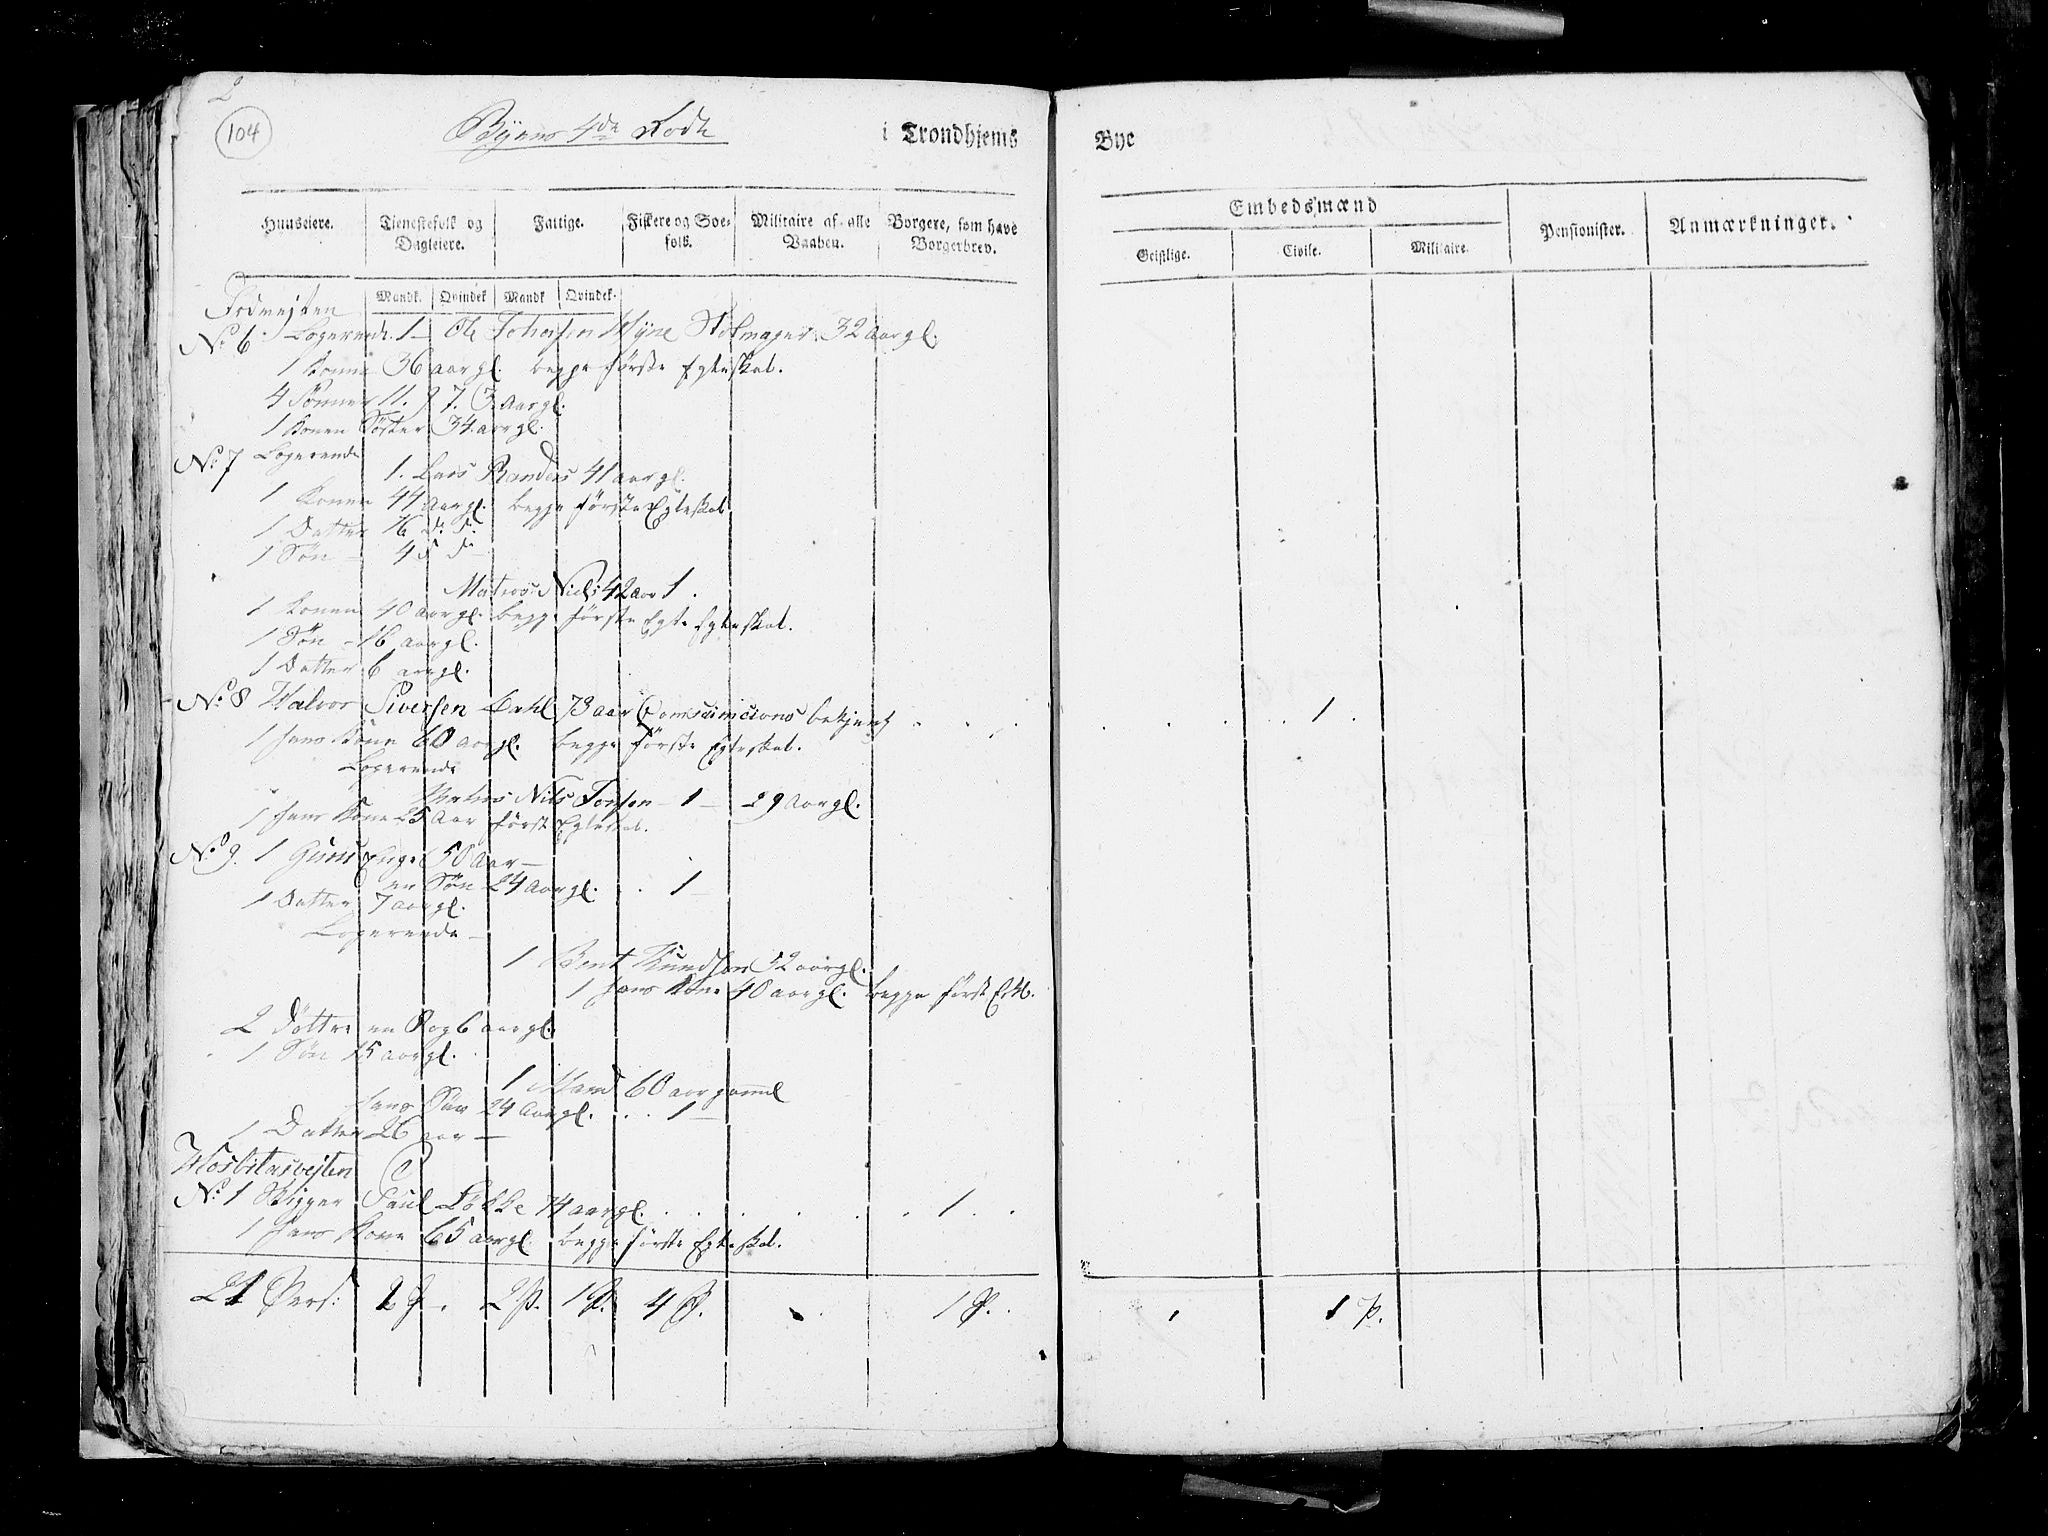 2
104
Byens 4de Rode
i Trondhjems
Bye
Huuseiere.
Tienestefolk og Dagleiere.
Fattige.
Fiskere og Søefolk.
Militaire af alle Vaaben.
Borgere, som have Borgerbrev.
Embedsmænd
Geistlige.
Civile.
Militaire.
Pensionister.
Anmærkninger.
Mandk. Qvindek Mandk Qvindek.
No 6 Logerende 1 Ole Johnsen Wyne Stolmager 32 aar gl.
1 Kone 36 aar gl. begge første Egteskab.
4 Sønner 11. 9 7. 3 aar gl.
1 Konen Søster 34 aar gl.
No 7 Logerende
1. Lars Randers 41 aar gl.
1 Konen 44 aar gl. begge første Egteskab
1 Datter 16 do do
1 Søn 4 do do
Matros Niels 42 aar 1.
1 Konen 40 aar gl. begge første Egte Egteskab.
1 Søn - 16 aar gl.
1 Datter 6 aar gl.
No 8 Halvor Siversen Dahl 73 aar 1
1 hans Kone 60 aar gl. begge første Egteskab.
Logerende
Matros Nils Jonsen - 1 - 29 aar gl.
1 hans Kone 25 aar først Egteskab.
No 9. 1 50 aar -
en Søn 24 aar gl. 1 -
1 Datter 7 aar gl.
Logerende -
1 Bent Knudsen 52 aar gl.
1 hans Kone 40 aar gl. begge først
2 Døttre en 8 og 6 aar gl.
1 Søn 15 aar gl.
1 Mand 60 aar gammel
hans Søn 24 aar gl. 1 -
1 Datter 26 aar -
No 1 Brygger Paul Løkke 74 aar gl. 1
1 hans Kone 65 aar gl. begge første Egteskab.
21 Pers: 2 P. 2 P. 1 P. 4 P. 1 P. 1 P.